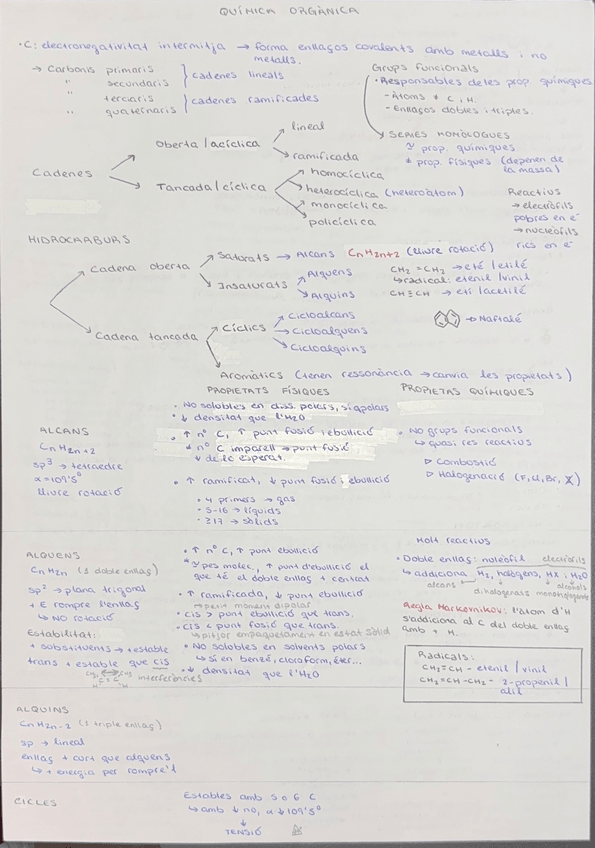 QUÍMICA ORGÀNICA
· C: electronegativitat intermitja → forma enllaços covalents amb metalls i no
metalls.
→ Carbonis primaris
" secundaris
} cadenes lineals
" terciaris
" quaternaris
} cadenes ramificades
Grups funcionals
· Responsables de les prop. químiques
- Àtoms ≠ C i H.
- Enllaços dobles i triples.
→ SERIES HOMÒLOGUES
≃ prop. químiques
≠ prop. físiques (depenen de
la massa)
Cadenes
Oberta / acíclica
lineal
ramificada
Tancada / cíclica
homocíclica
heterocíclica (heteroàtom)
monocíclica
policíclica
Reactius
→ electròfils
pobres en e⁻
→ nucleòfils
rics en e⁻
HIDROCARBURS
Cadena oberta
Saturats → Alcans CnH2n+2 (lliure rotació)
Insaturats
Alquens
Alquins
CH2 = CH2 → etè / etilè
↳ radical: etenil / vinil
CH≡CH → etí / acetilè
Cadena tancada
Cíclics
Cicloalcans
Cicloalquens
Cicloalquins
→ Naftalè
Aromàtics (tenen ressonància → canvia les propietats)
PROPIETATS FÍSIQUES
PROPIETAS QUÍMIQUES
ALCANS
CnH2n+2
sp³ → tetraedre
α = 109'5º
lliure rotació
· No solubles en diss. polars, sí apolars
· ↓ densitat que l'H2O
· ↑ nº C, ↑ punt fusió i ebullició
nº C imparell → punt fusió
↓ de lo esperat
· ↑ ramificat, ↓ punt fusió i ebullició
· 4 primers → gas
· 5-16 → líquids
· ≥17 → sòlids
· No grups funcionals
↳ quasi res reactius
▷ Combustió
▷ Halogenació (F, Cl, Br, I)
ALQUENS
CnH2n (1 doble enllaç)
sp² → plana trigonal
+ E rompre l'enllaç
↳ NO rotació
Estabilitat:
+ substituents → + estable
trans + estable que cis
interferències
· ↑ nº C, ↑ punt ebullició
· ≃ pes molec., ↑ punt d'ebullició el
que té el doble enllaç + centrat
· ↑ ramificada, ↓ punt ebullició
→ petit moment dipolar
· cis > punt ebullició que trans.
· cis < punt fusió que trans.
↳ pitjor empaquetament en estat sòlid
· No solubles en solvents polars
↳ Sí en benzè, cloroform, èter...
· ↓ densitat que l'H2O
Molt reactius
· Doble enllaç: nucleòfil
electròfils
↳ addiciona H2, halògens, HX i H2O
alcans
dihalogenats
monohalogenats
alcohols
Regla Markovnikov: l'àtom d'H
s'addiciona al C del doble enllaç
amb + H.
Radicals:
CH2=CH - etenil / vinil
CH2=CH-CH2 - 2-propenil /
al·lil
ALQUINS
CnH2n-2 (1 triple enllaç)
sp → lineal
enllaç + curt que alquens
↳ + energia per rompre'l
CICLES
Estables amb 5 o 6 C
↳ amb ↓ no, α ↓ 109'5º
↓
TENSIÓ